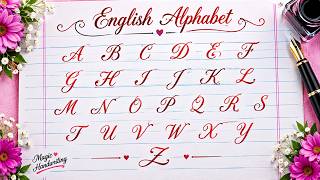 English Alphabet
A B C D E F
G H I J K L
M N O P Q R S
T U V W X Y
Z
Magic
Handwriting